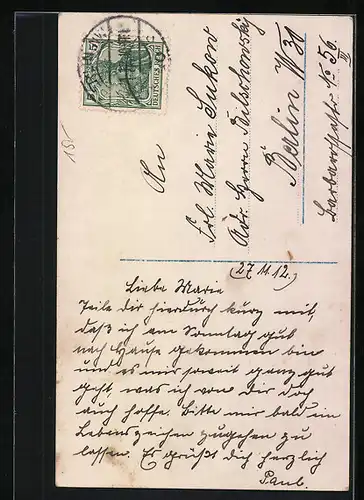 5
DEUTSCHES REICH
155
An
Frl. Marie Lukow
Adr. Herrn
Berlin W 30
Barbarossastr. No 56 III
(27.11.12.)
Liebe Marie
Teile dir hierdurch kurz mit,
daß ich am Sonntag gut
nach Hause gekommen bin
und es mir soweit ganz gut
geht, was ich von Dir doch
auch hoffe. Bitte mir bald ein
Lebenszeichen zugehen zu
lassen. Es grüßt dich herzlich
Paul.